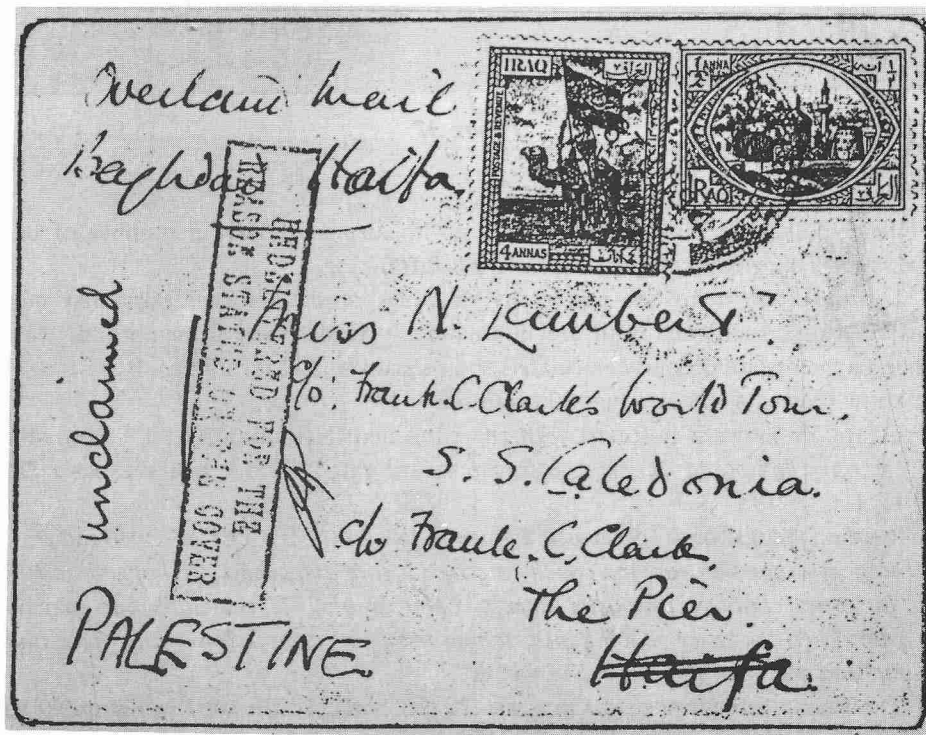 Overland Mail
Baghdad Haifa.
IRAQ
العراق
POSTAGE & REVENUE
4 ANNAS
½ ANNA
IRAQ
UNDELIVERED FOR THE
REASON STATED ON THE COVER
unclaimed
Miss N. Lambert
c/o. Frank C. Clark's World Tour.
S. S. Caledonia.
c/o Frank. C. Clark.
The Pier.
Haifa.
PALESTINE